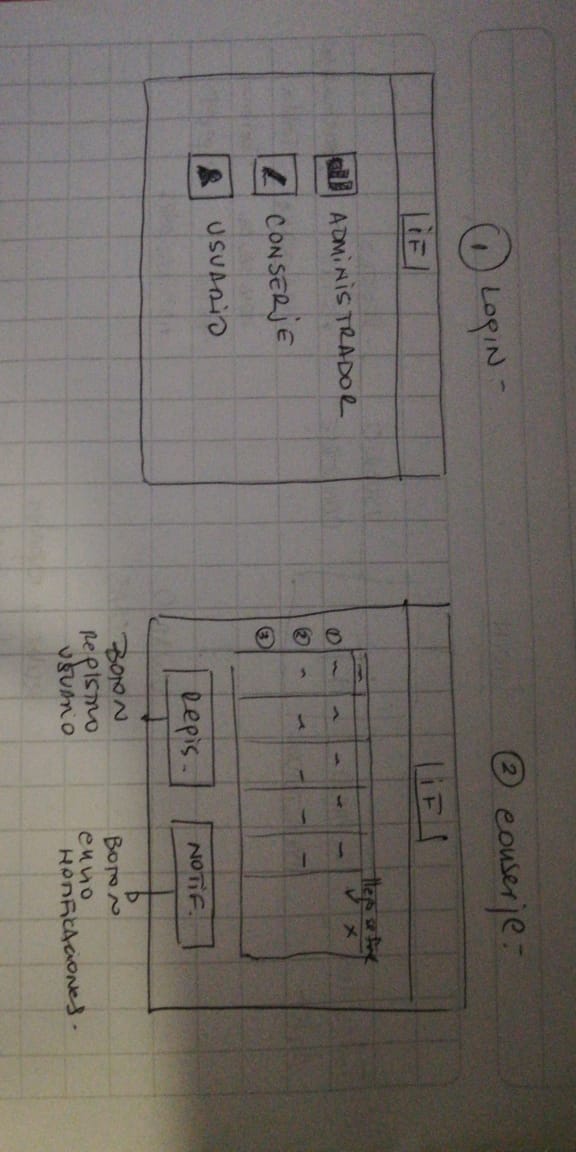 ① LOGIN:-
|iF|
ADMINISTRADOR
CONSERJE
USUARIO
② conserje:-
|iF|
①
②
③
x
Regis.
NOTIF.
BOTON
Registro
USUARIO
BOTON
envio
NOTIFICACIONES.